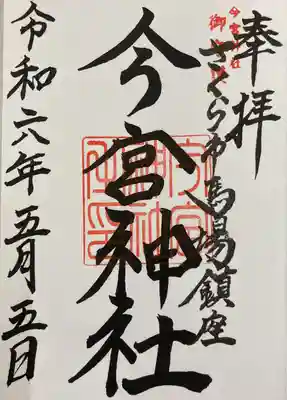 奉拝
さくら市馬場鎮座
今宮神社
令和六年五月五日